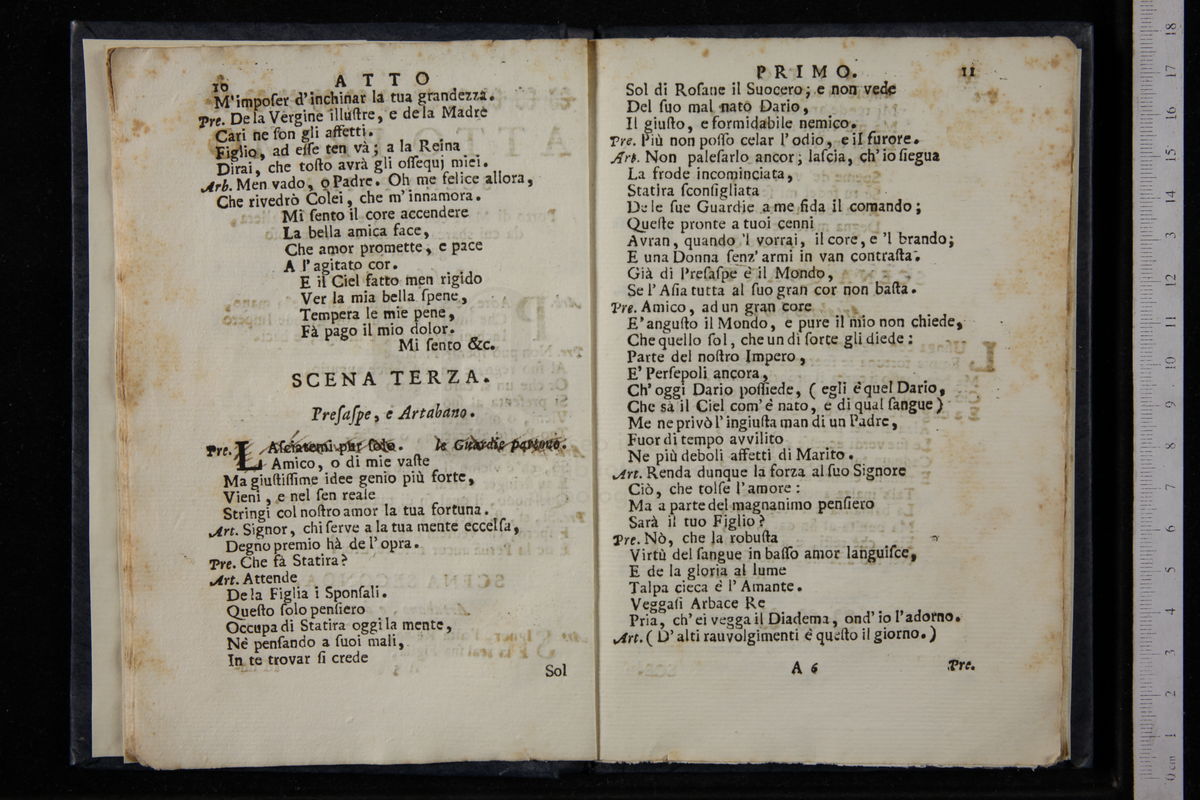 10 ATTO
M'impoſer d'inchinar la tua grandezza.
Pre. De la Vergine illuſtre, e de la Madre
Cari ne ſon gli affetti.
Figlio, ad eſſe ten và; a la Reina
Dirai, che toſto avrà gli oſſequj miei.
Arb. Men vado, o Padre. Oh me felice allora,
Che rivedrò Colei, che m'innamora.
Mi ſento il core accendere
La bella amica face,
Che amor promette, e pace
A l'agitato cor.
E il Ciel fatto men rigido
Ver la mia bella ſpene,
Tempera le mie pene,
Fà pago il mio dolor.
Mi ſento &c.
SCENA TERZA.
Preſaſpe, e Artabano.
Pre. LAſciatemi pur ſolo. le Guardie partono.
Amico, o di mie vaſte
Ma giuſtiſſime idee genio più forte,
Vieni, e nel ſen reale
Stringi col noſtro amor la tua fortuna.
Art. Signor, chi ſerve a la tua mente eccelſa,
Degno premio hà de l'opra.
Pre. Che fà Statira?
Art. Attende
De la Figlia i Sponſali.
Queſto ſolo penſiero
Occupa di Statira oggi la mente,
Nè penſando a ſuoi mali,
In te trovar ſi crede
Sol
PRIMO. 11
Sol di Roſane il Suocero; e non vede
Del ſuo mal nato Dario,
Il giuſto, e formidabile nemico.
Pre. Più non poſſo celar l'odio, e il furore.
Art. Non paleſarlo ancor; laſcia, ch'io ſiegua
La frode incominciata,
Statira ſconſigliata
De le ſue Guardie a me fida il comando;
Queſte pronte a tuoi cenni
Avran, quando 'l vorrai, il core, e 'l brando;
E una Donna ſenz'armi in van contraſta.
Già di Preſaſpe è il Mondo,
Se l'Aſia tutta al ſuo gran cor non baſta.
Pre. Amico, ad un gran core
E' anguſto il Mondo, e pure il mio non chiede,
Che quello ſol, che un dì ſorte gli diede:
Parte del noſtro Impero,
E' Perſepoli ancora,
Ch'oggi Dario poſſiede, (egli è quel Dario,
Che sà il Ciel com'è nato, e di qual ſangue)
Me ne privò l'ingiuſta man di un Padre,
Fuor di tempo avvilito
Ne più deboli affetti di Marito.
Art. Renda dunque la forza al ſuo Signore
Ciò, che tolſe l'amore:
Ma a parte del magnanimo penſiero
Sarà il tuo Figlio?
Pre. Nò, che la robuſta
Virtù del ſangue in baſſo amor languiſce,
E de la gloria al lume
Talpa cieca è l'Amante.
Veggaſi Arbace Re
Pria, ch'ei vegga il Diadema, ond'io l'adorno.
Art. (D'alti rauvolgimenti è queſto il giorno.)
A 6 Pre.